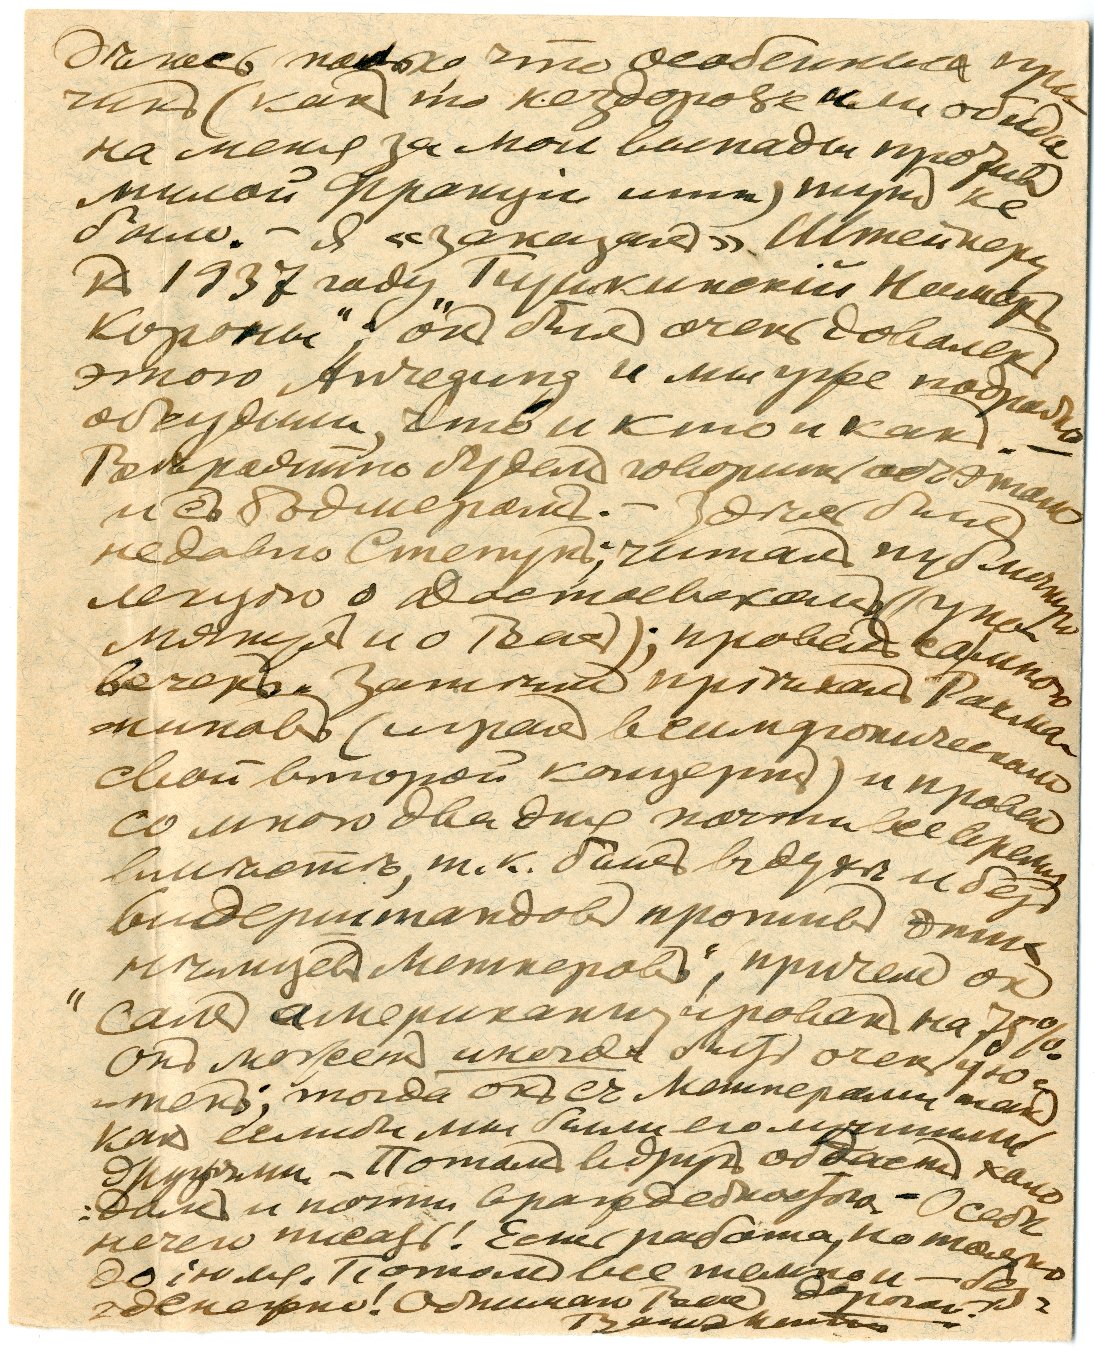 надѣюсь только, что особенныхъ при-
чинъ (какъ то нездоровье или обида
на меня за мои выпады противъ
милой Франціи итп) тутъ не
было. – Я «заказалъ» Штейнеру
къ 1937 году Пушкинскій Номеръ
"Короны"; онъ былъ очень доволенъ
этого и мы уже подробно
обсудили, что и кто и какъ. –
Вѣроятно будемъ говорить объ этомъ
и съ Бодмеромъ. – Здѣсь былъ
недавно Степунъ; читалъ публичную
лекцію о Достоевскомъ (упо-
мянулъ и о Васъ); провелъ со мною
вечеръ. Затѣмъ пріѣхалъ Рахма-
ниновъ (игралъ въ симфоническомъ
свой второй концертъ) и провелъ
со мною два дня почти все время
вмѣстѣ, т.к. былъ въ духѣ и безъ
видерштандовъ противъ этихъ
"нѣмцевъ Метнеровъ", причемъ онъ
самъ американизированъ на 75%.
Онъ можетъ иногда быть очень ую-
тенъ; тогда онъ съ Метнерами такъ
какъ если бы мы были его лучшими
друзьями – Потомъ вдругъ обдастъ холо-
домъ и почти враждебностью. – О себѣ
нечего писать! Есть работа, но только
до іюля. Потомъ все темно и – без-
денежно! Обнимаю Васъ дорогой.